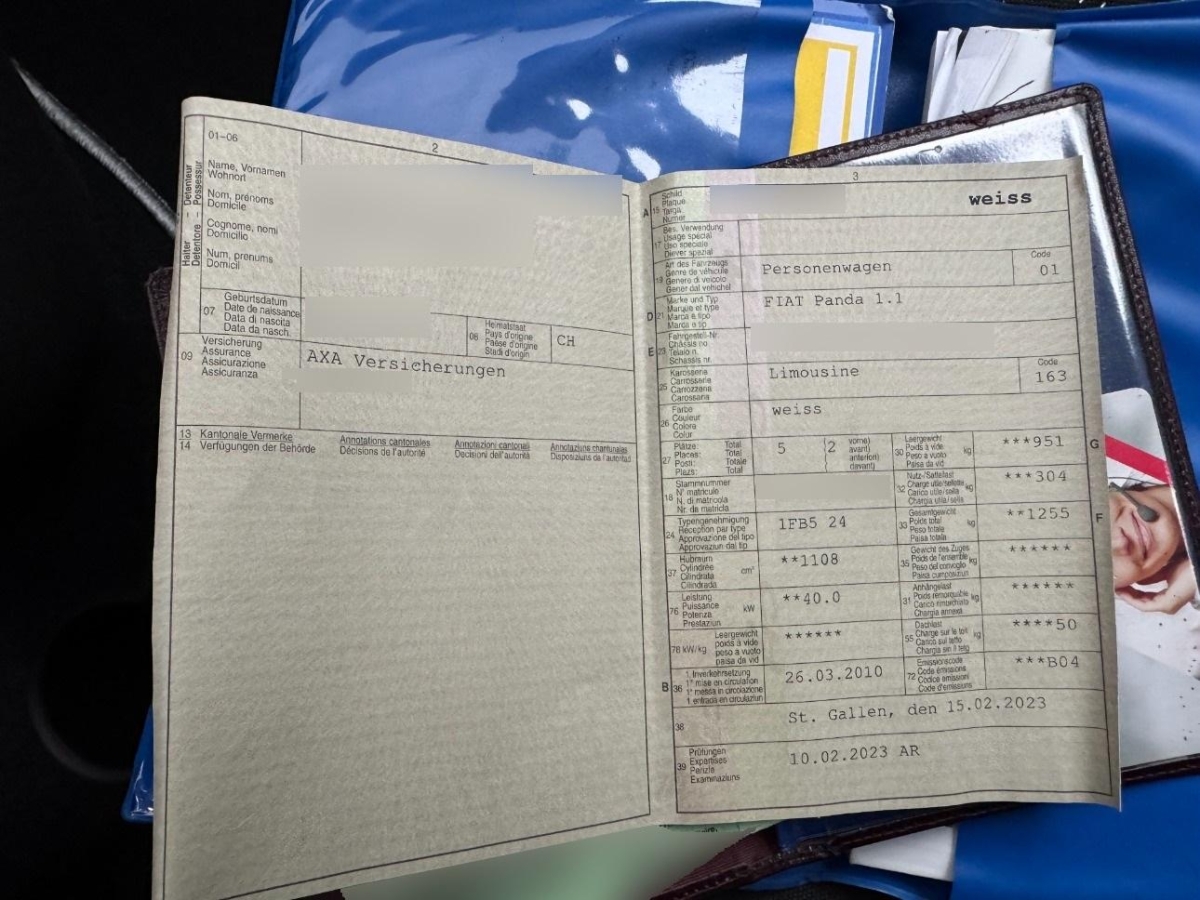 01–06
2
Halter – Detenteur
Detentore – Possessur
Name, Vornamen
Wohnort
Nom, prénoms
Domicile
Cognome, nomi
Domicilio
Num, prenums
Domicil
07
Geburtsdatum
Date de naissance
Data di nascita
Data da nasch.
08
Heimatstaat
Pays d'origine
Paese d'origine
Stadi d'origin
CH
09
Versicherung
Assurance
Assicurazione
Assicuranza
AXA Versicherungen
13 Kantonale Vermerke
14 Verfügungen der Behörde
Annotations cantonales
Décisions de l'autorité
Annotazioni cantonali
Decisioni dell'autorità
Annotaziuns chantunalas
Disposiziuns da l'autoritad
3
A 15
Schild
Plaque
Targa
Numer
weiss
17
Bes. Verwendung
Usage spécial
Uso speciale
Diever spezial
19
Art des Fahrzeugs
Genre de véhicule
Genere di veicolo
Gener dal vehichel
Personenwagen
Code
01
D 21
Marke und Typ
Marque et type
Marca e tipo
Marca e tip
FIAT Panda 1.1
E 23
Fahrgestell-Nr.
Châssis no.
Telaio n.
Schassis nr.
25
Karosserie
Carrosserie
Carrozzeria
Carossaria
Limousine
Code
163
26
Farbe
Couleur
Colore
Colur
weiss
27
Plätze: Total
Places: Total
Posti: Totale
Plazs: Total
5
(2
vorne)
avant)
anteriori)
davant)
30
Leergewicht
Poids à vide
Peso a vuoto
Paisa da vid
kg
***951
G
18
Stammnummer
N° matricule
N. di matricola
Nr. da matricla
32
Nutz-/Sattellast
Charge utile/sellette
Carico utile/sella
Chargia utila/sella
kg
***304
24
Typengenehmigung
Réception par type
Approvazione del tipo
Approvaziun dal tip
1FB5 24
33
Gesamtgewicht
Poids total
Peso totale
Paisa totala
kg
**1255
F
37
Hubraum
Cylindrée
Cilindrata
Cilindrada
cm³
**1108
35
Gewicht des Zuges
Poids de l'ensemble
Peso del convoglio
Paisa cumposiziun
kg
******
76
Leistung
Puissance
Potenza
Prestaziun
kW
**40.0
31
Anhängelast
Poids remorquable
Carico rimorchiato
Chargia annexa
kg
******
78 kW/kg
Leergewicht
poids à vide
peso a vuoto
paisa da vid
******
55
Dachlast
Charge sur le toit
Carico sul tetto
Chargia sin il tetg
kg
****50
B 36
1. Inverkehrsetzung
1re mise en circulation
1a messa in circolazione
1. entrada en circulaziun
26.03.2010
72
Emissionscode
Code émissions
Codice emissioni
Code d'emissiuns
***B04
38
St. Gallen, den 15.02.2023
39
Prüfungen
Expertises
Perizie
Examinaziuns
10.02.2023 AR